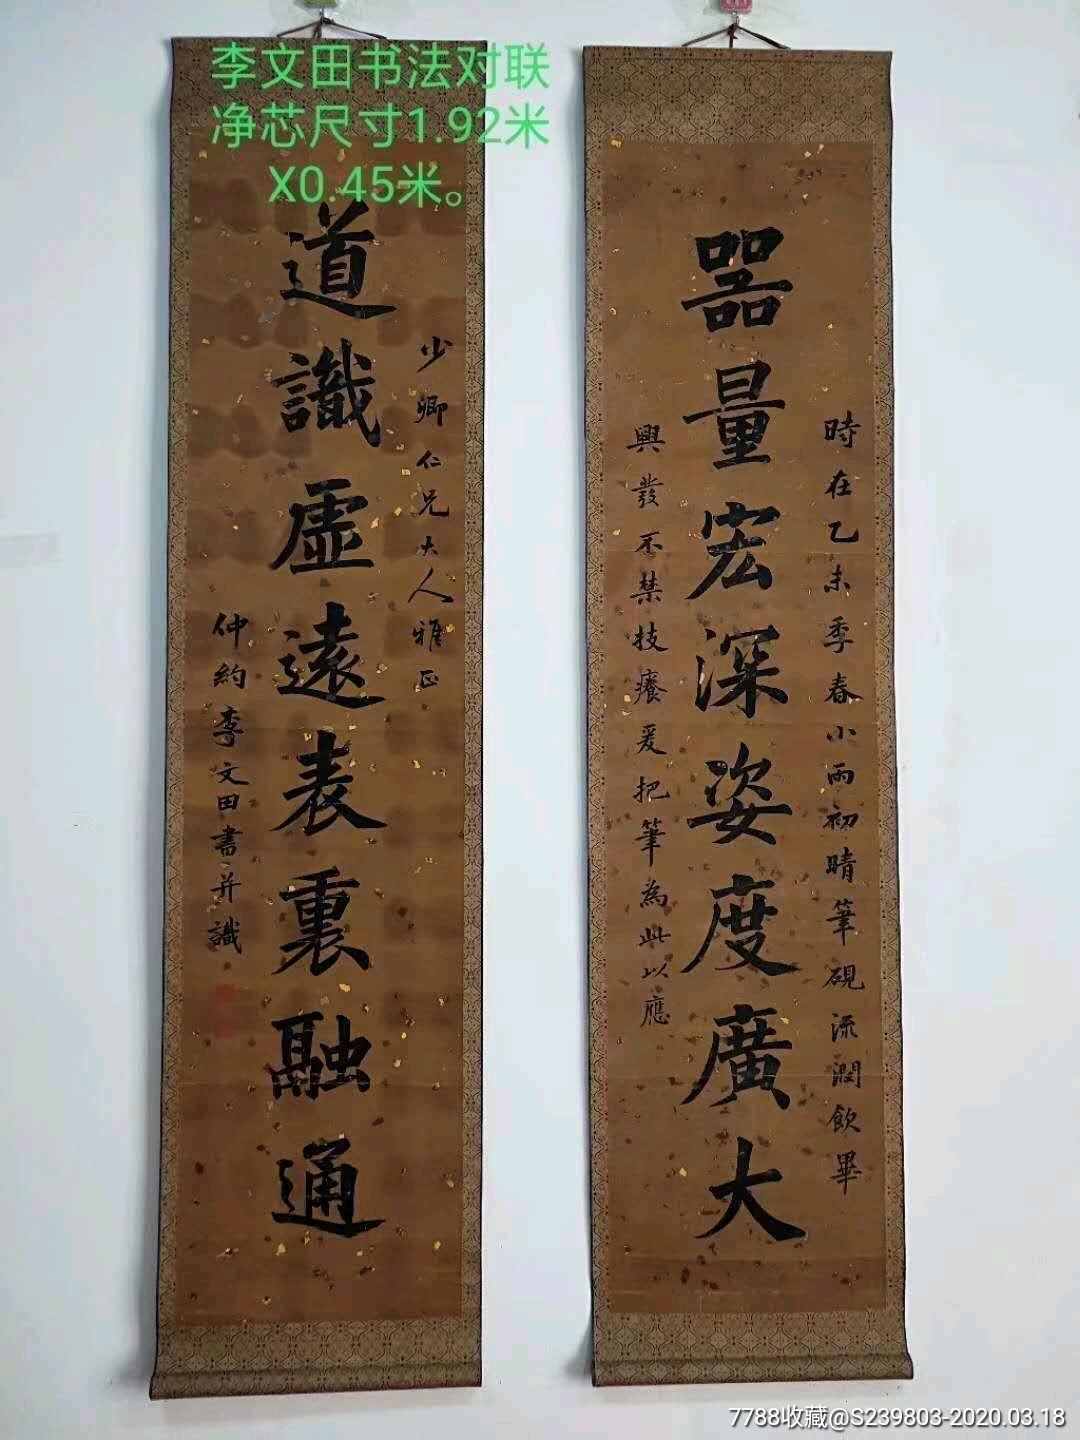 李文田书法对联
净芯尺寸1.92米
X0.45米。
時在乙未季春小雨初晴筆硯流潤飲畢
器量宏深姿度廣大
興發不禁技癢爰把筆為此以應
少卿仁兄大人雅正
道識虛遠表裏融通
仲約李文田書并識
7788收藏@S239803-2020.03.18